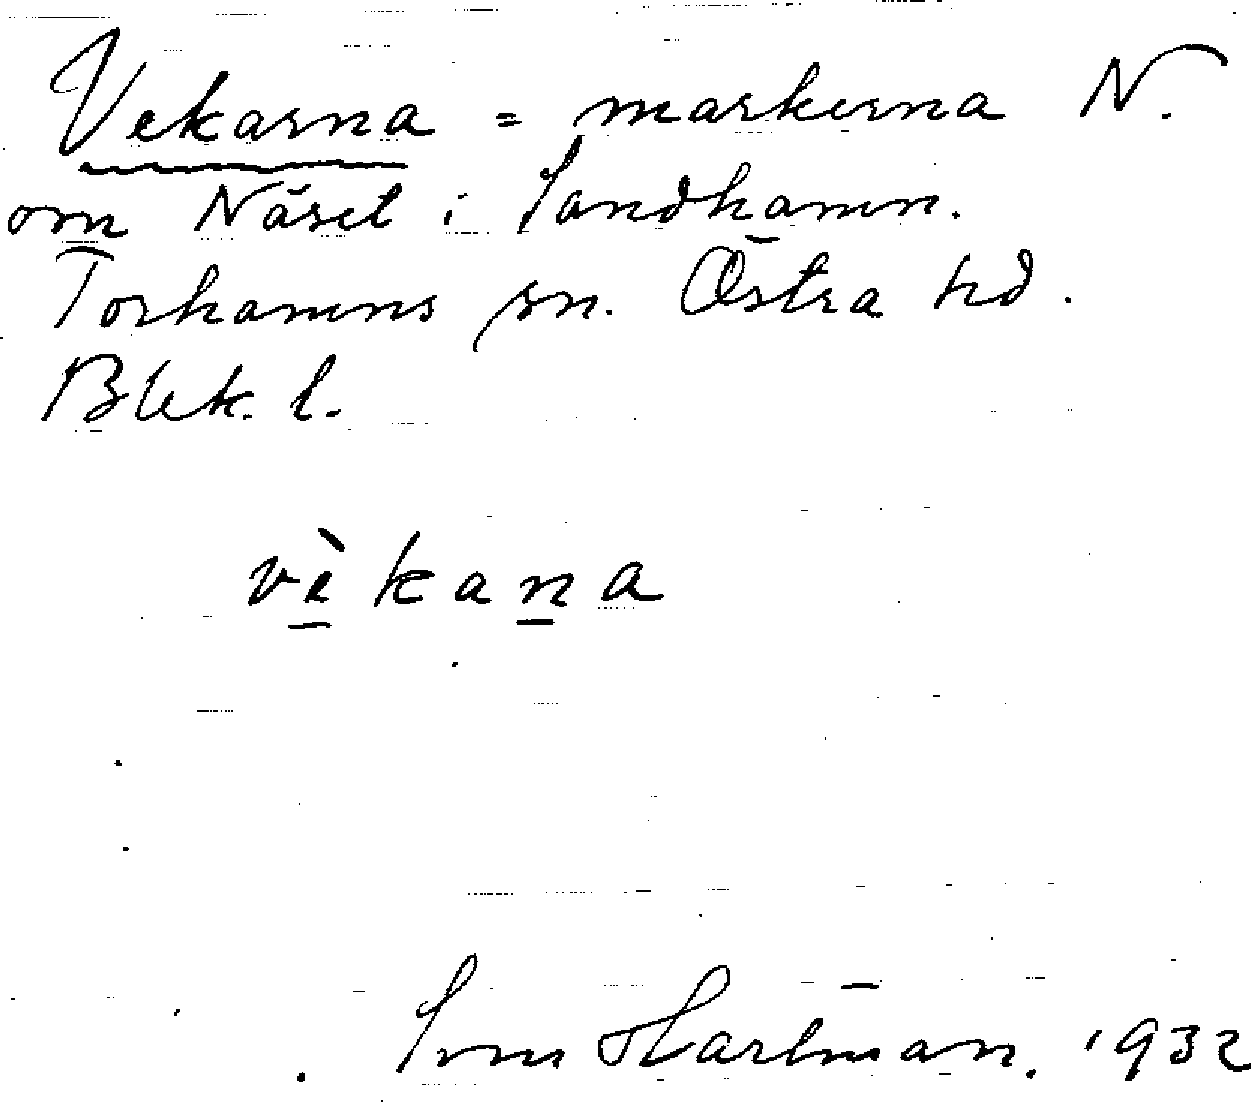 Vekarna = markerna N.
om Näset i Sandhamn.
Torhamns sn. Östra hd.
Blek. l.
vèkana
Sven Hartman. 1932